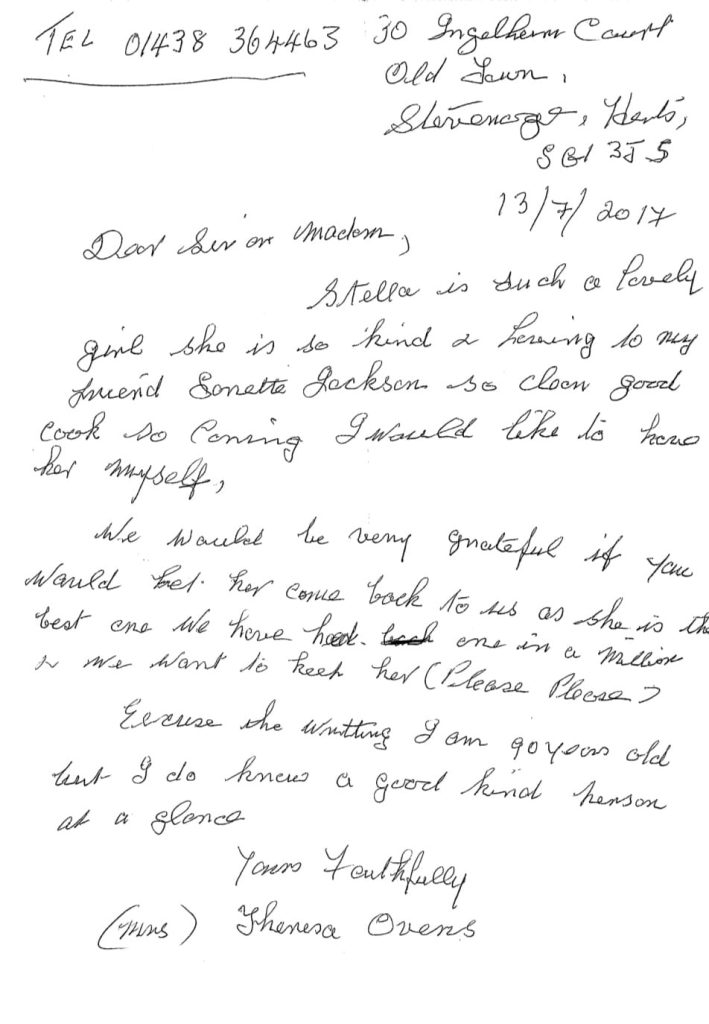 TEL 01438 364463 30 Ingelheim Court
Old Town,
Stevenage, Herts,
SG1 3JS
13/7/2017
Dear Sir or Madam,
Stella is such a lovely
girl she is so kind & loving to my
friend Sonette Jackson so clean good
cook so caring I would like to have
her myself,
We would be very grateful if you
would let her come back to us as she is the
best one we have had one in a million
& we want to keep her (Please Please)
Excuse the writting I am 90 years old
but I do know a good kind person
at a glance
Yours Faithfully
(Mrs) Theresa Ovens